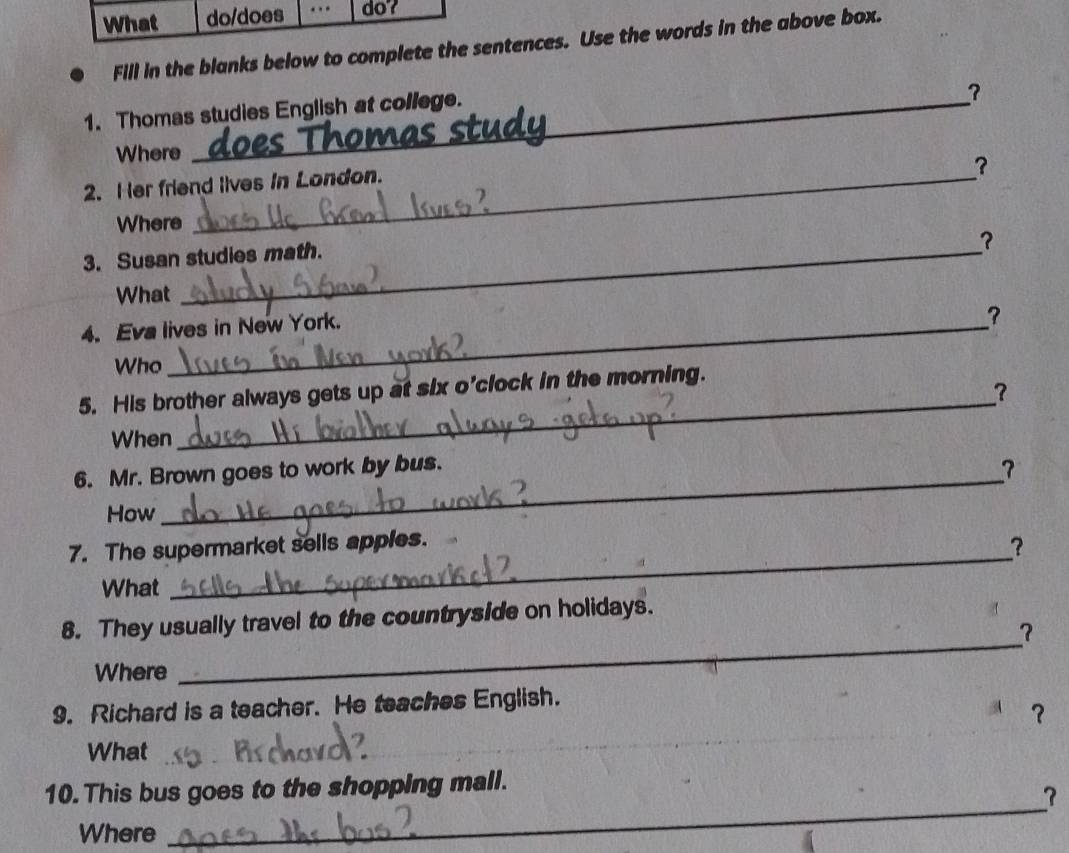 What do/does ... do?
● Fill in the blanks below to complete the sentences. Use the words in the above box.
1. Thomas studies English at college.
Where does Thomas study ?
2. Her friend lives in London.
Where does He friend lives? ?
3. Susan studies math.
What study Susan? ?
4. Eva lives in New York.
Who lives in New york? ?
5. His brother always gets up at six o'clock in the morning.
When does Hi brother always gets up? ?
6. Mr. Brown goes to work by bus.
How do He goes to work? ?
7. The supermarket sells apples.
What sells the supermarket? ?
8. They usually travel to the countryside on holidays.
Where ?
9. Richard is a teacher. He teaches English.
What is Richard? ?
10. This bus goes to the shopping mall.
Where goes the bus? ?